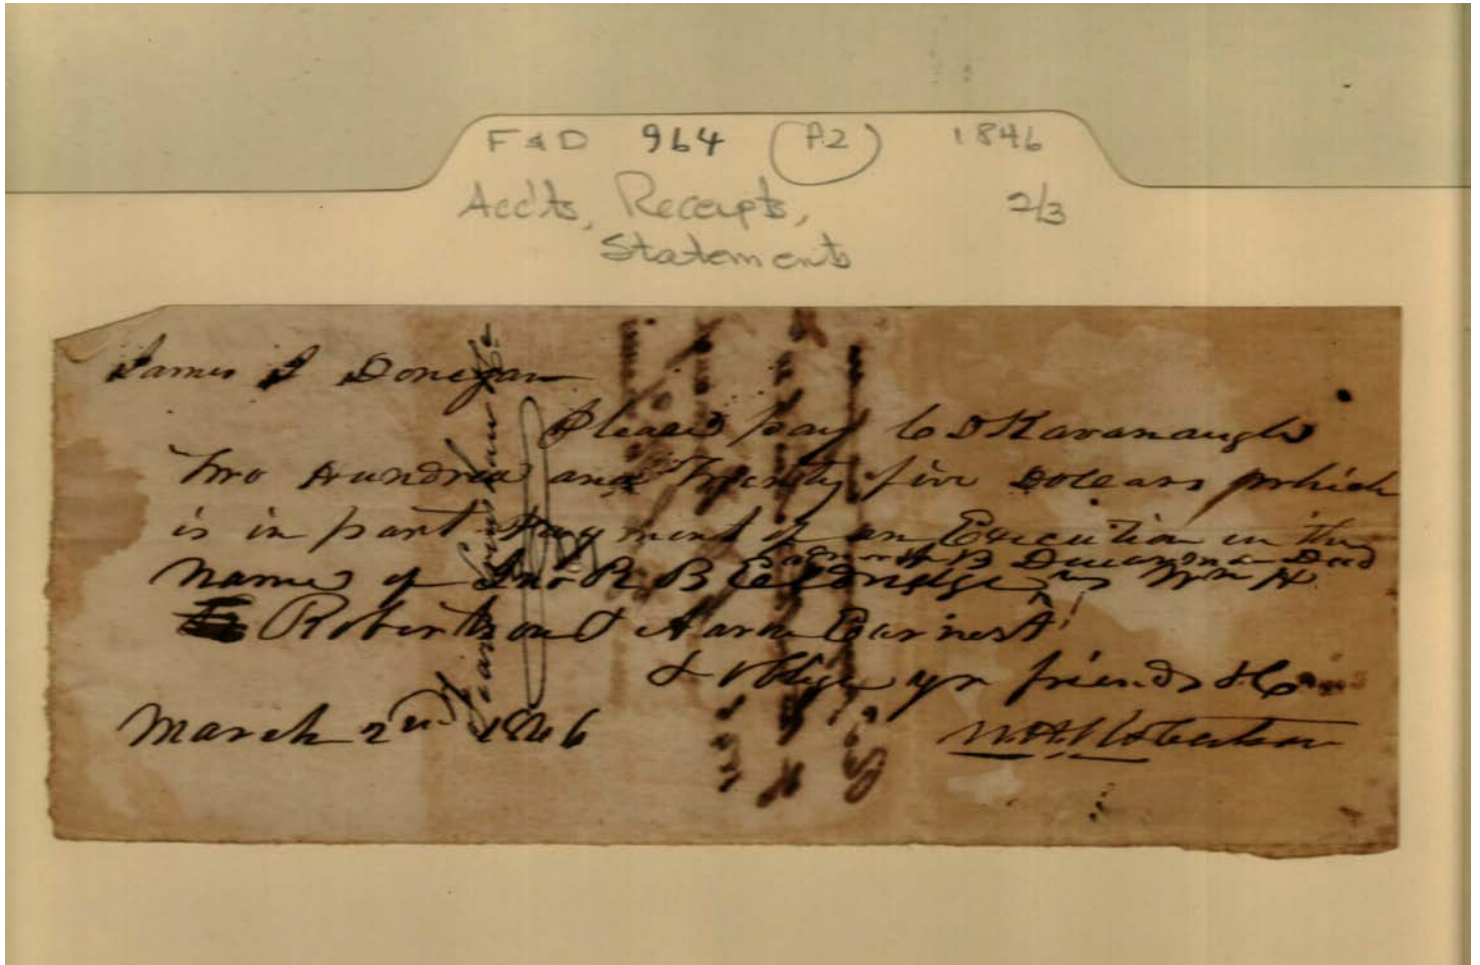 F & D 964 (P.2) 1846
Acc'ts, Receipts, 2/3
Statements
James J Donegan
Please pay C D Kavanaugh
Two Hundred and Twenty five Dollars which
is in part payment of an Execution in the
name of Jno R B Eldridge vs Wm H
B Dec
Robertson & Aaron Earnest
& oblige yr friend &C
March 2nd 1846 W H Robertson